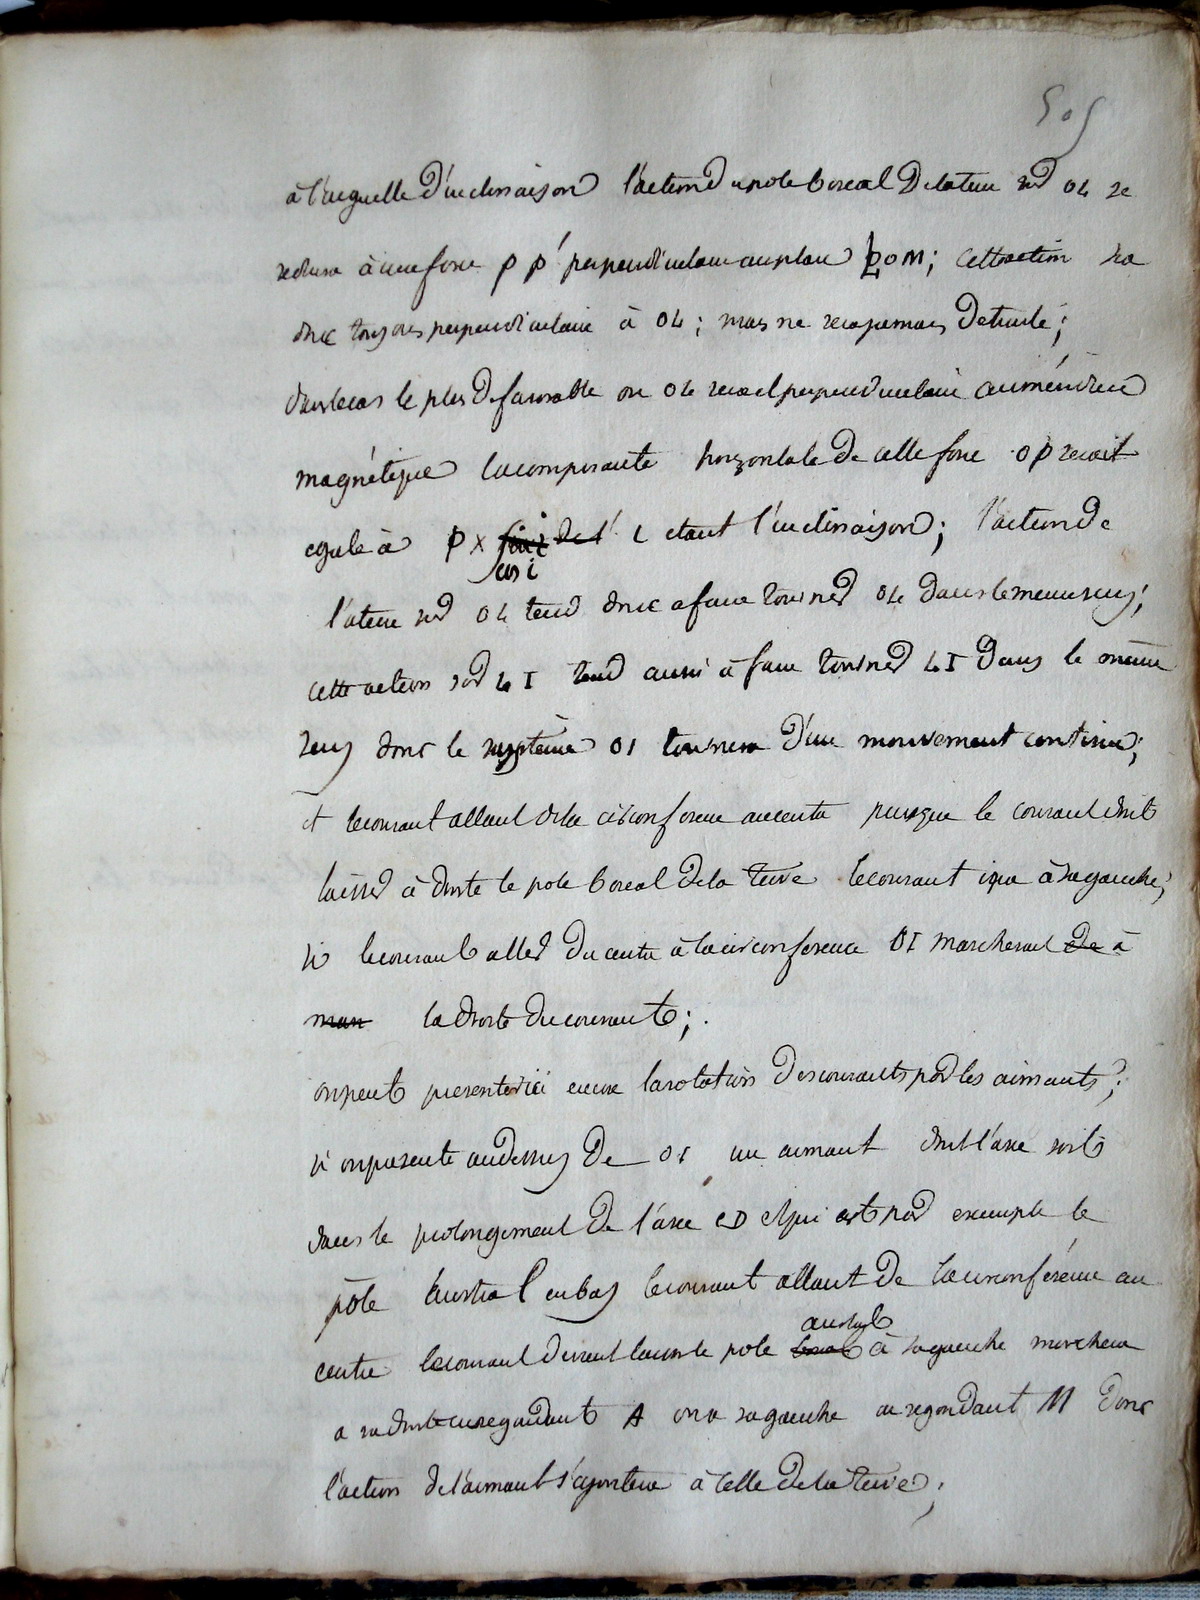 505
à l'aiguille d'inclinaison l'action du pole boreal de la terre sur OL se
reduira à une force pp' perpendiculaire au plan LOM; cette action sera
donc toujours perpendiculaire à OL; mais ne sera jamais detruite;
dans le cas le plus defavorable ou OL serait perpendiculaire au méridien
magnétique la composante horizontale de cette force op serait
egale à p x cos i i etant l'inclinaison; l'action de
la terre sur OL tend donc a faire tourner OL dans le meme sens;
cette action sur LI tend aussi à faire tourner LI dans le même
sens donc le système OI tournera d'un mouvement continu;
et le courant allant de la circonference au centre puisque le courant doit
laisser à droite le pole boreal de la terre le courant ira à sa gauche;
si le courant aller du centre à la circonference OI marcherait de à
man la droite du courant;
on peut presenter ici encore la rotation des courants par les aimants;
si on presente au dessus de OI un aimant dont l'axe soit
dans le prolongement de l'axe CD et qui ait par exemple le
pôle austral en bas le courant allant de la circonférence au
centre le courant devant avoir le pole austral à sa gauche marchera
a sa droite en regardant A ou a sa gauche en regardant M donc
l'action de l'aimant s'ajoutera à celle de la terre;